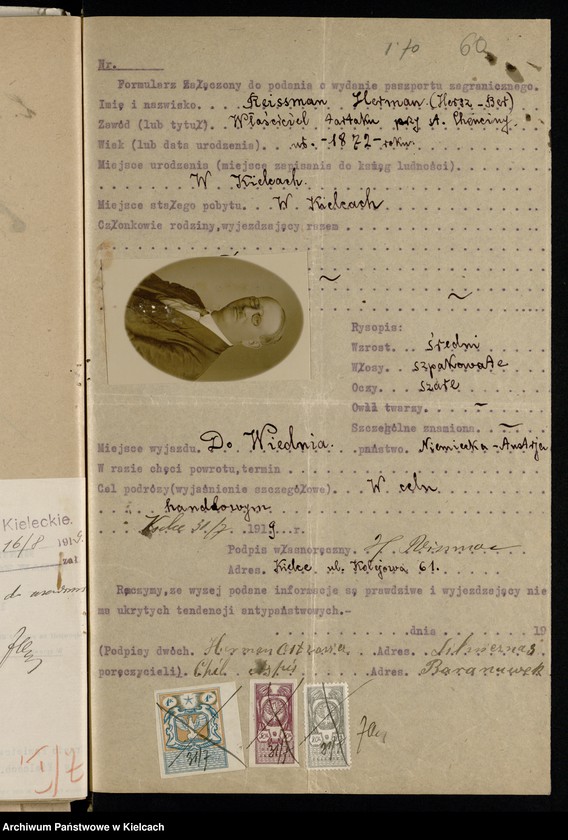 170 60
Nr.
Formularz Załączony do podania o wydanie paszportu zagranicznego.
Imię i nazwisko. . . Reissman Herman (Hersz-Ber)
Zawód (lub tytuł). Właściciel tartaku przy st. Chęciny.
Wiek (lub data urodzenia). . ur. -1872- roku.
Miejsce urodzenia (miejsce zapisania do ksiąg ludności).
W Kielcach.
Miejsce stałego pobytu. W Kielcach
Członkowie rodziny, wyjeżdzający razem
Rysopis:
Wzrost. średni
Włosy. szpakowate
Oczy. szare
Owal twarzy. —
Szczególne znamiona. —
Miejsce wyjazdu. Do Wiednia. państwo. Niemiecka-Austrja
W razie chęci powrotu, termin
Cel podróży (wyjaśnienie szczegółowe). W celu
handlowym
Kielce 31/7 1919 r.
Podpis własnoręczny. H.
Adres. Kielce ul. Kolejowa 61.
Ręczymy, że wyżej podane informacje są prawdziwe i wyjeżdzający nie
ma ukrytych tendencji antypaństwowych.-
dnia 19
(Podpisy dwóch. Herman Adres.
poręczycieli). Adres.
31/7 31/7 31/7
Kieleckie.
16/8 1919
zał
do
Archiwum Państwowe w Kielcach